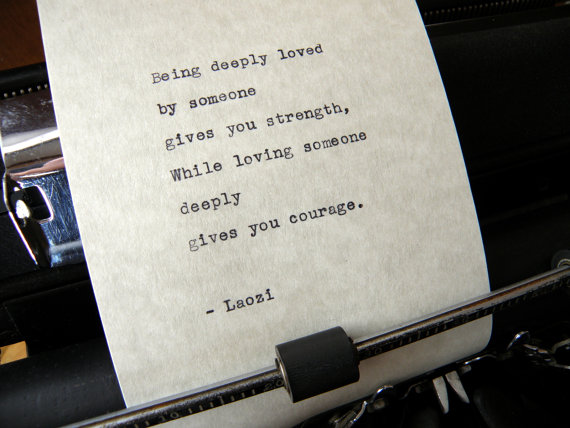 Being deeply loved
by someone
gives you strength,
While loving someone
deeply
gives you courage.
- Laozi